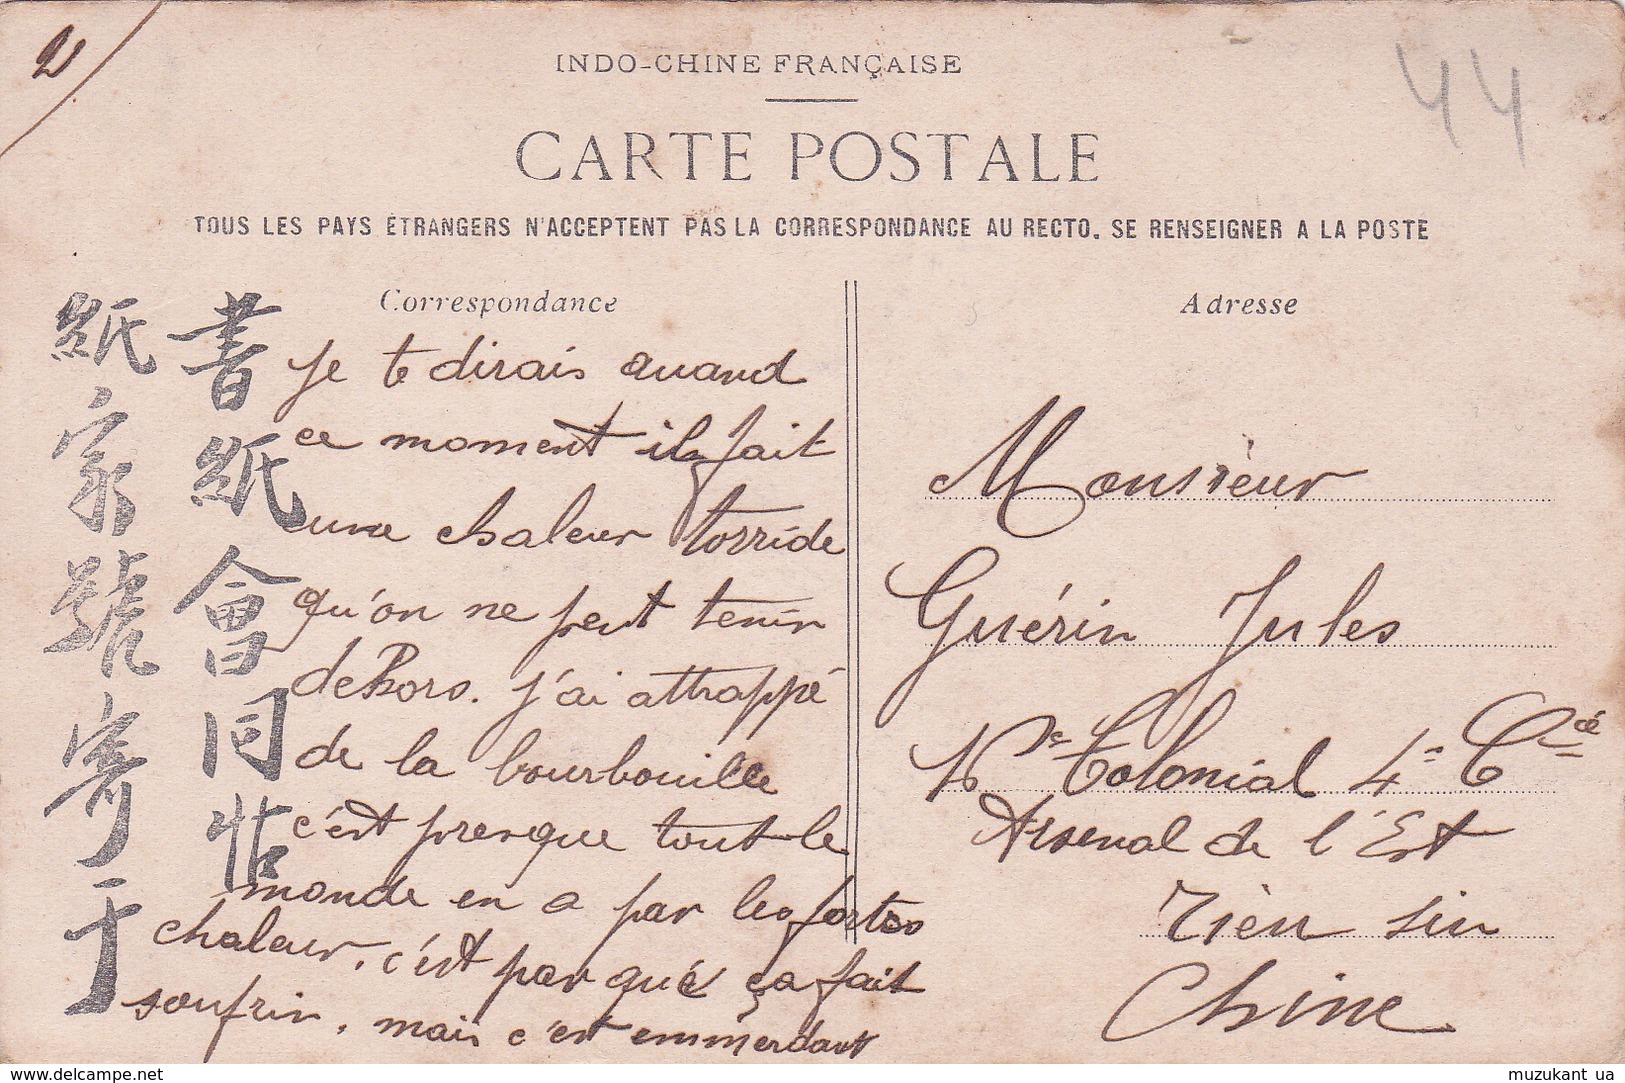 2
44
INDO-CHINE FRANÇAISE
CARTE POSTALE
TOUS LES PAYS ÉTRANGERS N'ACCEPTENT PAS LA CORRESPONDANCE AU RECTO. SE RENSEIGNER A LA POSTE
Correspondance
書紙會同帖
紙家號寄于
Je te dirais quand
ce moment il fait
une chaleur torride
qu'on ne peut tenir
dehors. j'ai attrappé
de la bourbouille
c'est presque tout le
monde en a par les fortes
chaleur, c'est par qué ça fait
soufrir, mais c'est emmerdant
Adresse
Monsieur
Guérin Jules
16e Colonial 4e Cie
Arsenal de l'Est
Tièn sin
Chine
www.delcampe.net
muzukant ua